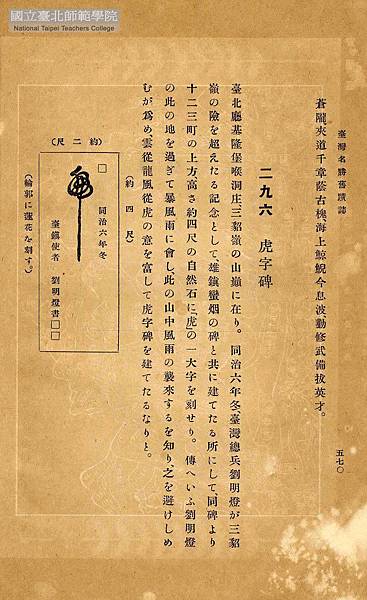 國立臺北師範學院
National Taipei Teachers College
臺灣名勝舊蹟誌
五七〇
蒼隴夾道千章蔭古槐、海上鯨鯢今息波、勸修武備拔英才。
二九六 虎字碑
臺北廳基隆堡喉洞庄三貂嶺の山巔に在り。同治六年冬、臺灣總兵劉明燈が三貂
嶺の險を超えたる記念として、雄鎭蠻烟の碑と共に建てたる所にして、同碑より
十二三町の上方高さ約四尺の自然石に、「虎」の一大字を刻せり。傳へいふ劉明燈
の此の地を過ぎて暴風雨に會し、此の山中風雨の襲來するを知り、之を避けしめ
むが爲め、雲從龍風從虎の意を富して虎字碑を建てたるなりと。
(約四尺)
(約二尺)
□
同治六年冬
虎
臺鎭使者 劉明燈書□□
(輪郭に蓮花を刻す。)